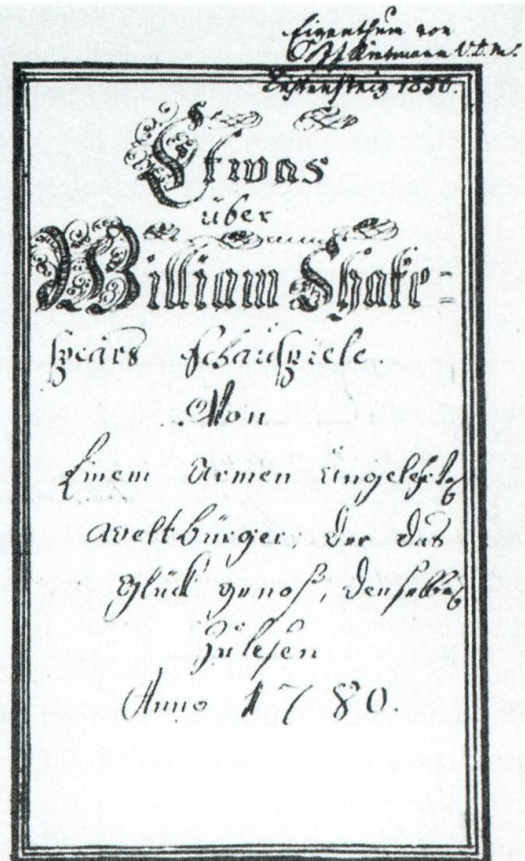 Eigenthum von
V. D. M.
Lichtensteig 1850.
Etwas
über
William Shake=
spears Schauspiele
Von
Einem Armen ungelehrten
Weltbürger, Der das
Glück genoß, denselben
Zulesen
Anno 1780.